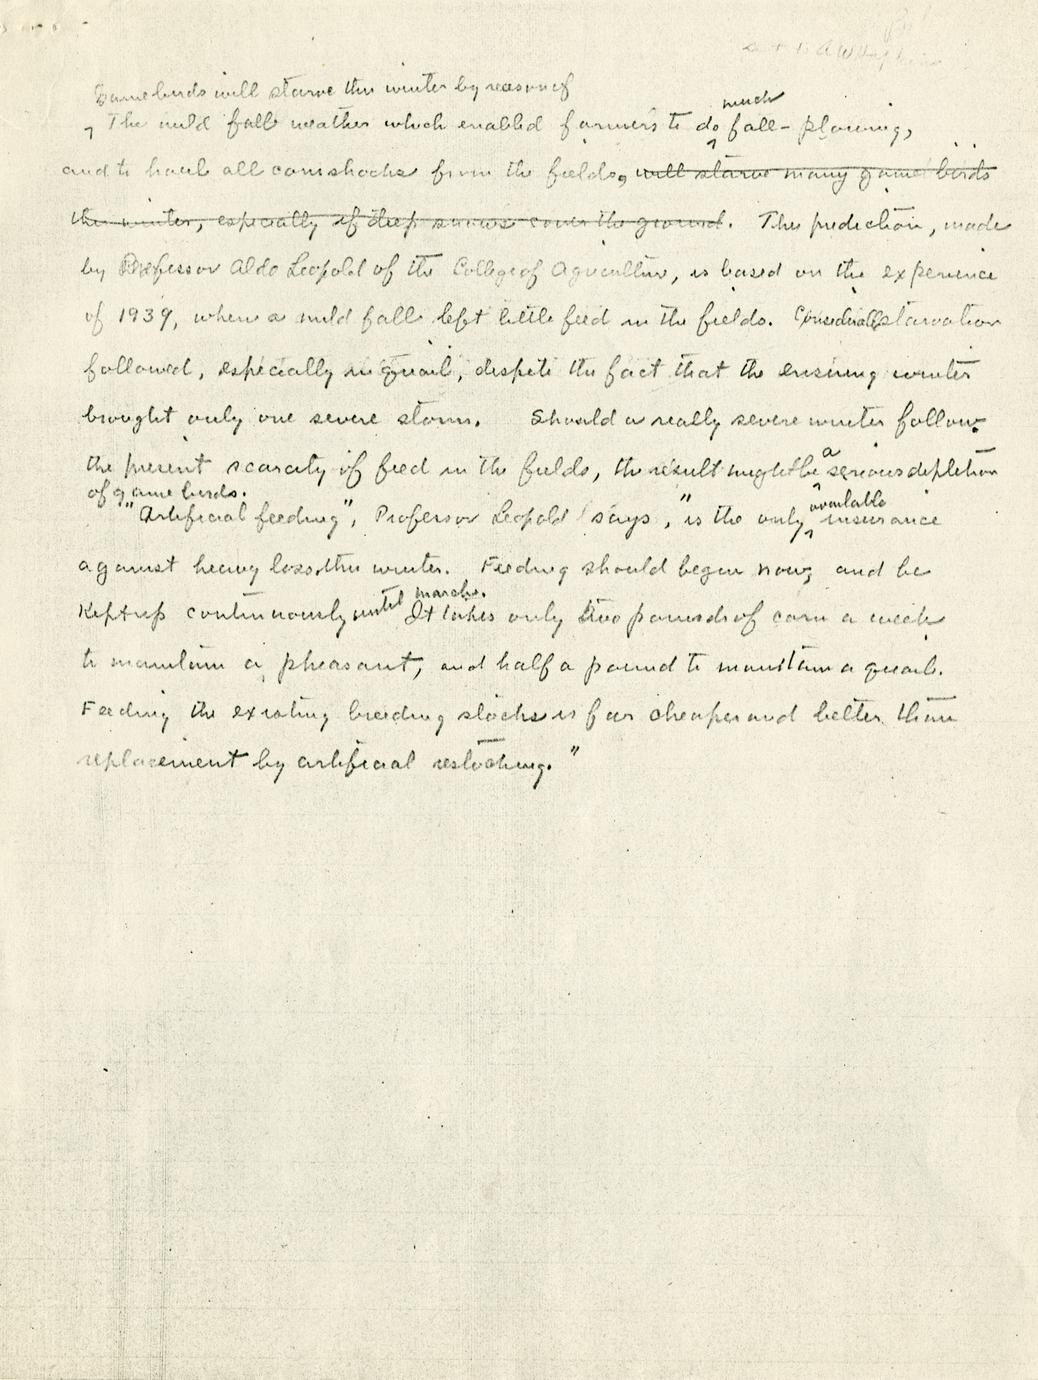 Game birds will starve this winter by reason of
The mild fall weather which enabled farmers to do much fall-plowing,
and to haul all cornshocks from the fields, will starve many game birds
this winter, especially if deep snows cover the ground. This prediction, made
by Professor Aldo Leopold of the College of Agriculture, is based on the experience
of 1939, when a mild fall left little feed in the fields. Considerable starvation
followed, especially in quail, despite the fact that the ensuing winter
brought only one severe storm. Should a really severe winter follow
the present scarcity of feed in the fields, the result might be a serious depletion
of game birds.
"Artificial feeding", Professor Leopold says, "is the only available insurance
against heavy loss this winter. Feeding should begin now, and be
kept up continuously until March. It takes only two pounds of corn a week
to maintain a pheasant, and half a pound to maintain a quail.
Feeding the existing breeding stocks is far cheaper and better than
replacement by artificial restocking."